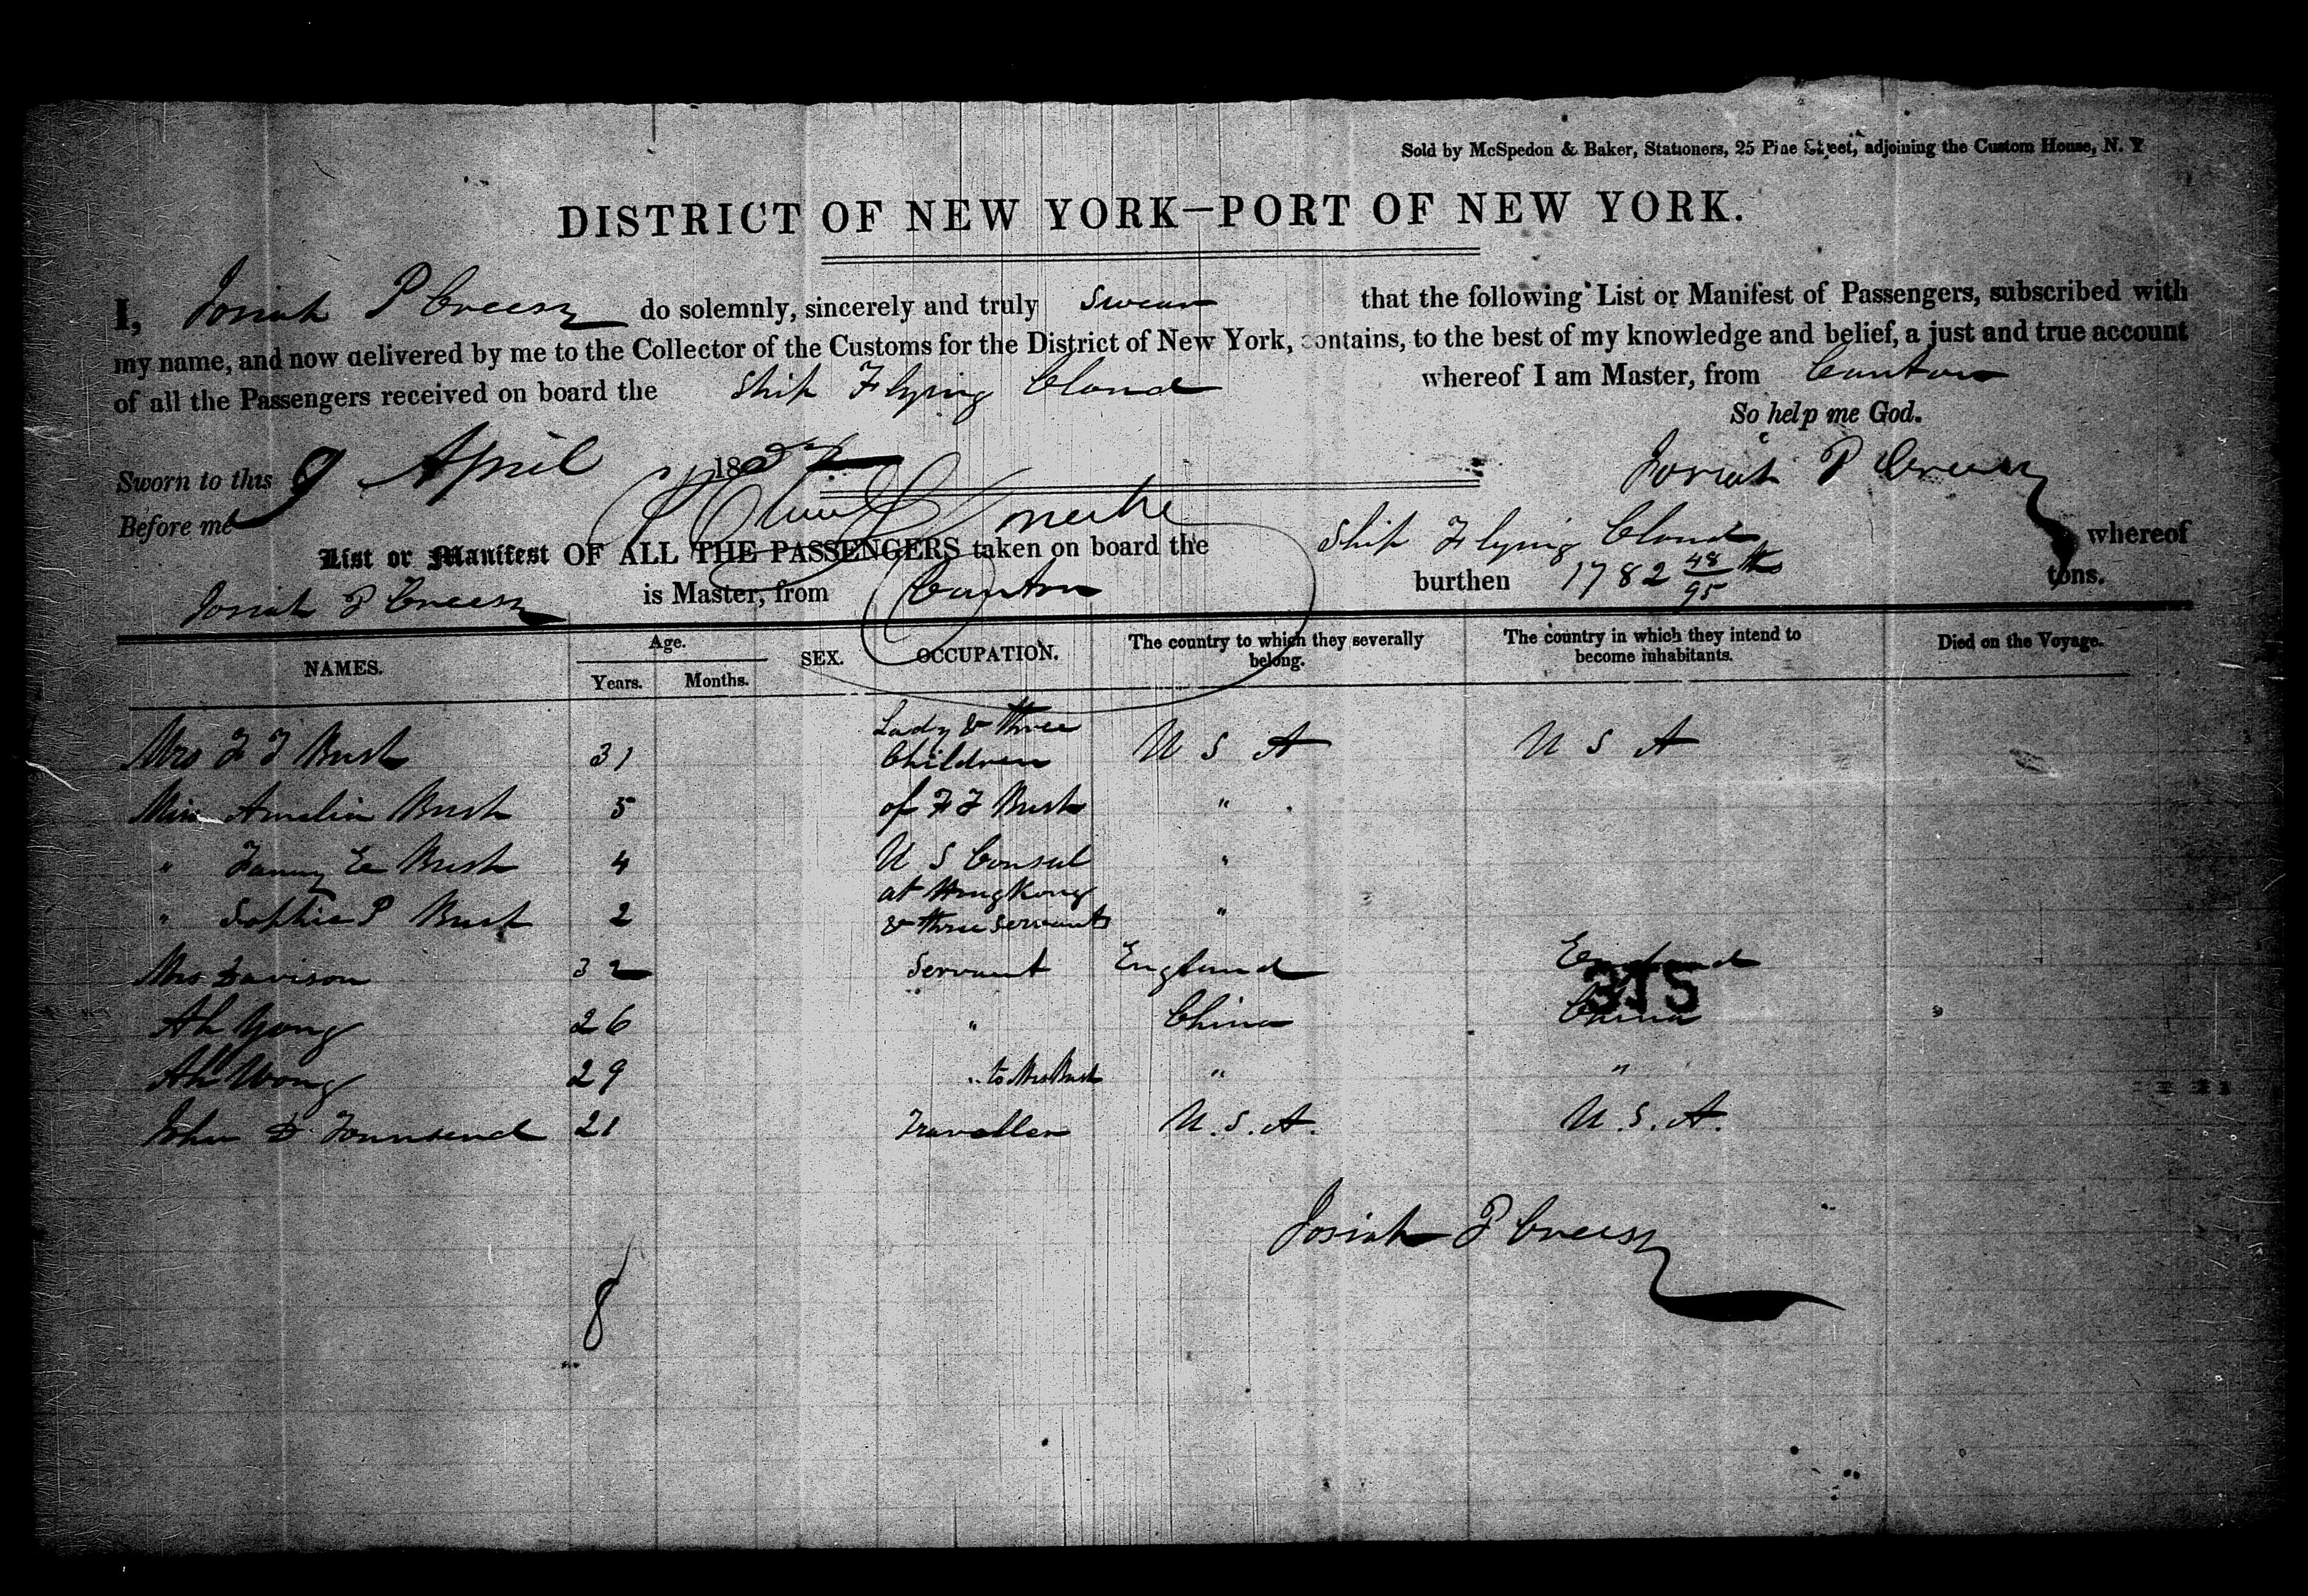 Sold by McSpedon & Baker, Stationers, 25 Pine Street, adjoining the Custom House, N. Y
DISTRICT OF NEW YORK—PORT OF NEW YORK.
I, Josiah P Creesy do solemnly, sincerely and truly Swear that the following List or Manifest of Passengers, subscribed with
my name, and now delivered by me to the Collector of the Customs for the District of New York, contains, to the best of my knowledge and belief, a just and true account
of all the Passengers received on board the Ship Flying Cloud whereof I am Master, from Canton
So help me God.
Sworn to this 9 April 185 Josiah P Creesy
Before me
List or Manifest OF ALL THE PASSENGERS taken on board the Ship Flying Cloud whereof
Josiah P Creesy is Master, from Canton burthen 1782 48/95 ths tons.
NAMES. Age. Years. Months. SEX. OCCUPATION. The country to which they severally belong. The country in which they intend to become inhabitants. Died on the Voyage.
Mrs F T Bush 31 Lady & three Children U S A U S A
Miss Amelia Bush 5 of F T Bush "
" Fanny E Bush 4 U S Consul "
at HongKong
" Sophie P Bush 2 & three servants "
Mrs Davison 32 Servant England England
315
Ah Yong 26 " China China
Ah Wong 29 " to Mrs Bush " "
John D. Townsend 21 Traveller U.S.A. U.S.A.
Josiah P Creesy
8